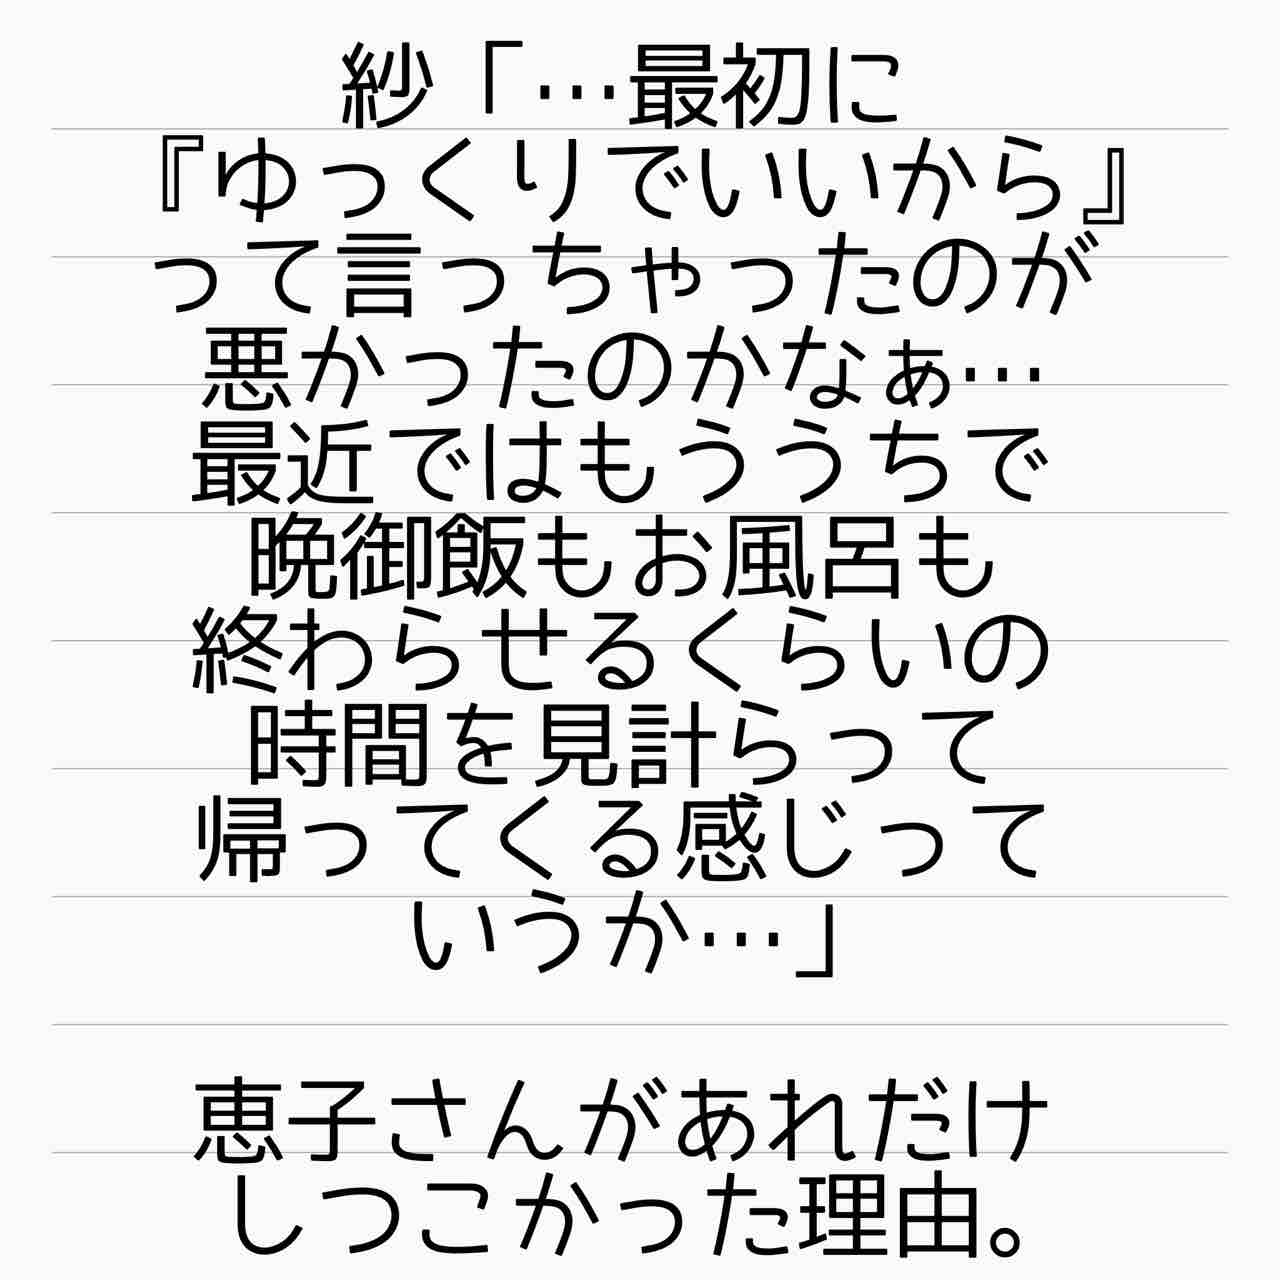 紗「…最初に
『ゆっくりでいいから』
って言っちゃったのが
悪かったのかなぁ…
最近ではもううちで
晩御飯もお風呂も
終わらせるくらいの
時間を見計らって
帰ってくる感じって
いうか…」
恵子さんがあれだけ
しつこかった理由。